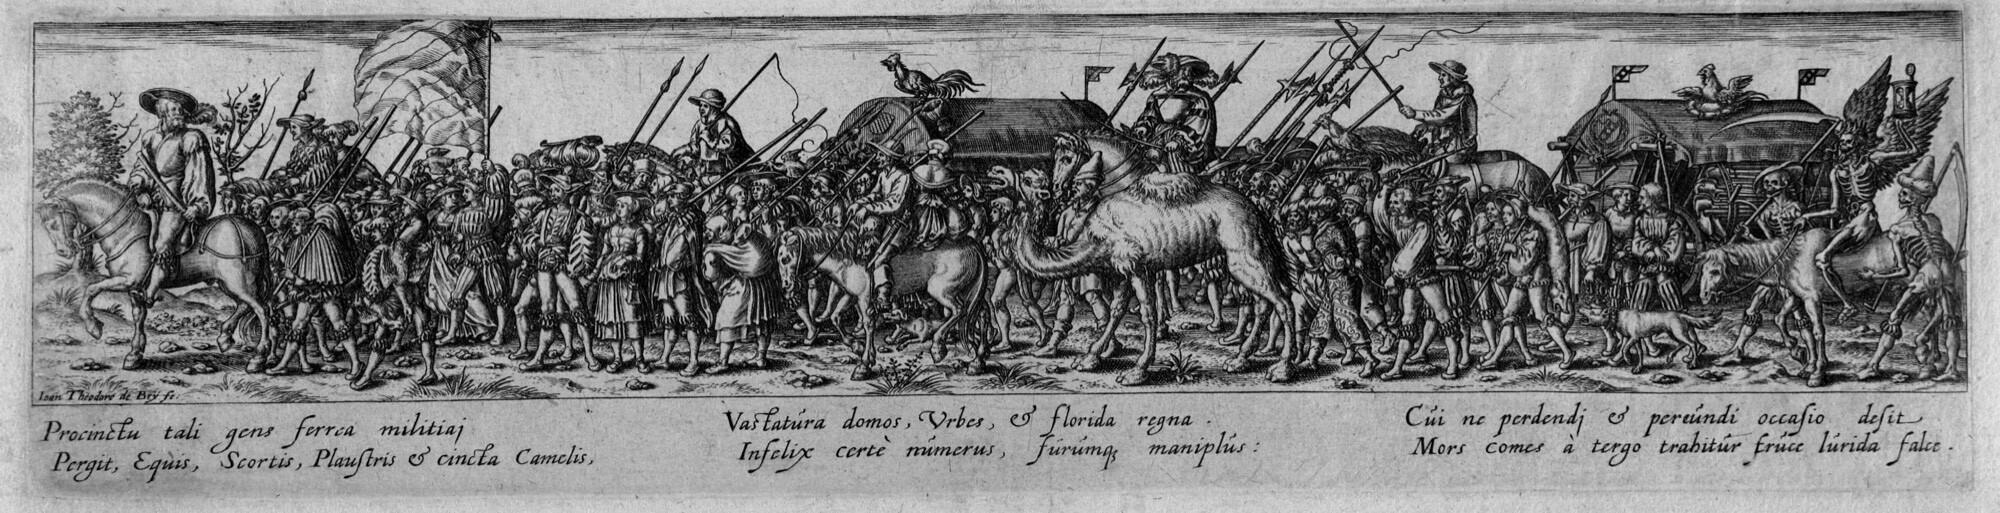 Ioan Theodore de Brÿ fe.
Procinctu tali gens ferrea militiaj
Pergit, Equis, Scortis, Plaustris & cincta Camelis,
Vastatura domos, Vrbes, & florida regna.
Infelix certè numerus, furumq; maniplus:
Cui ne perdendj & pereundi occasio desit
Mors comes à tergo trahitur truce lurida falce.